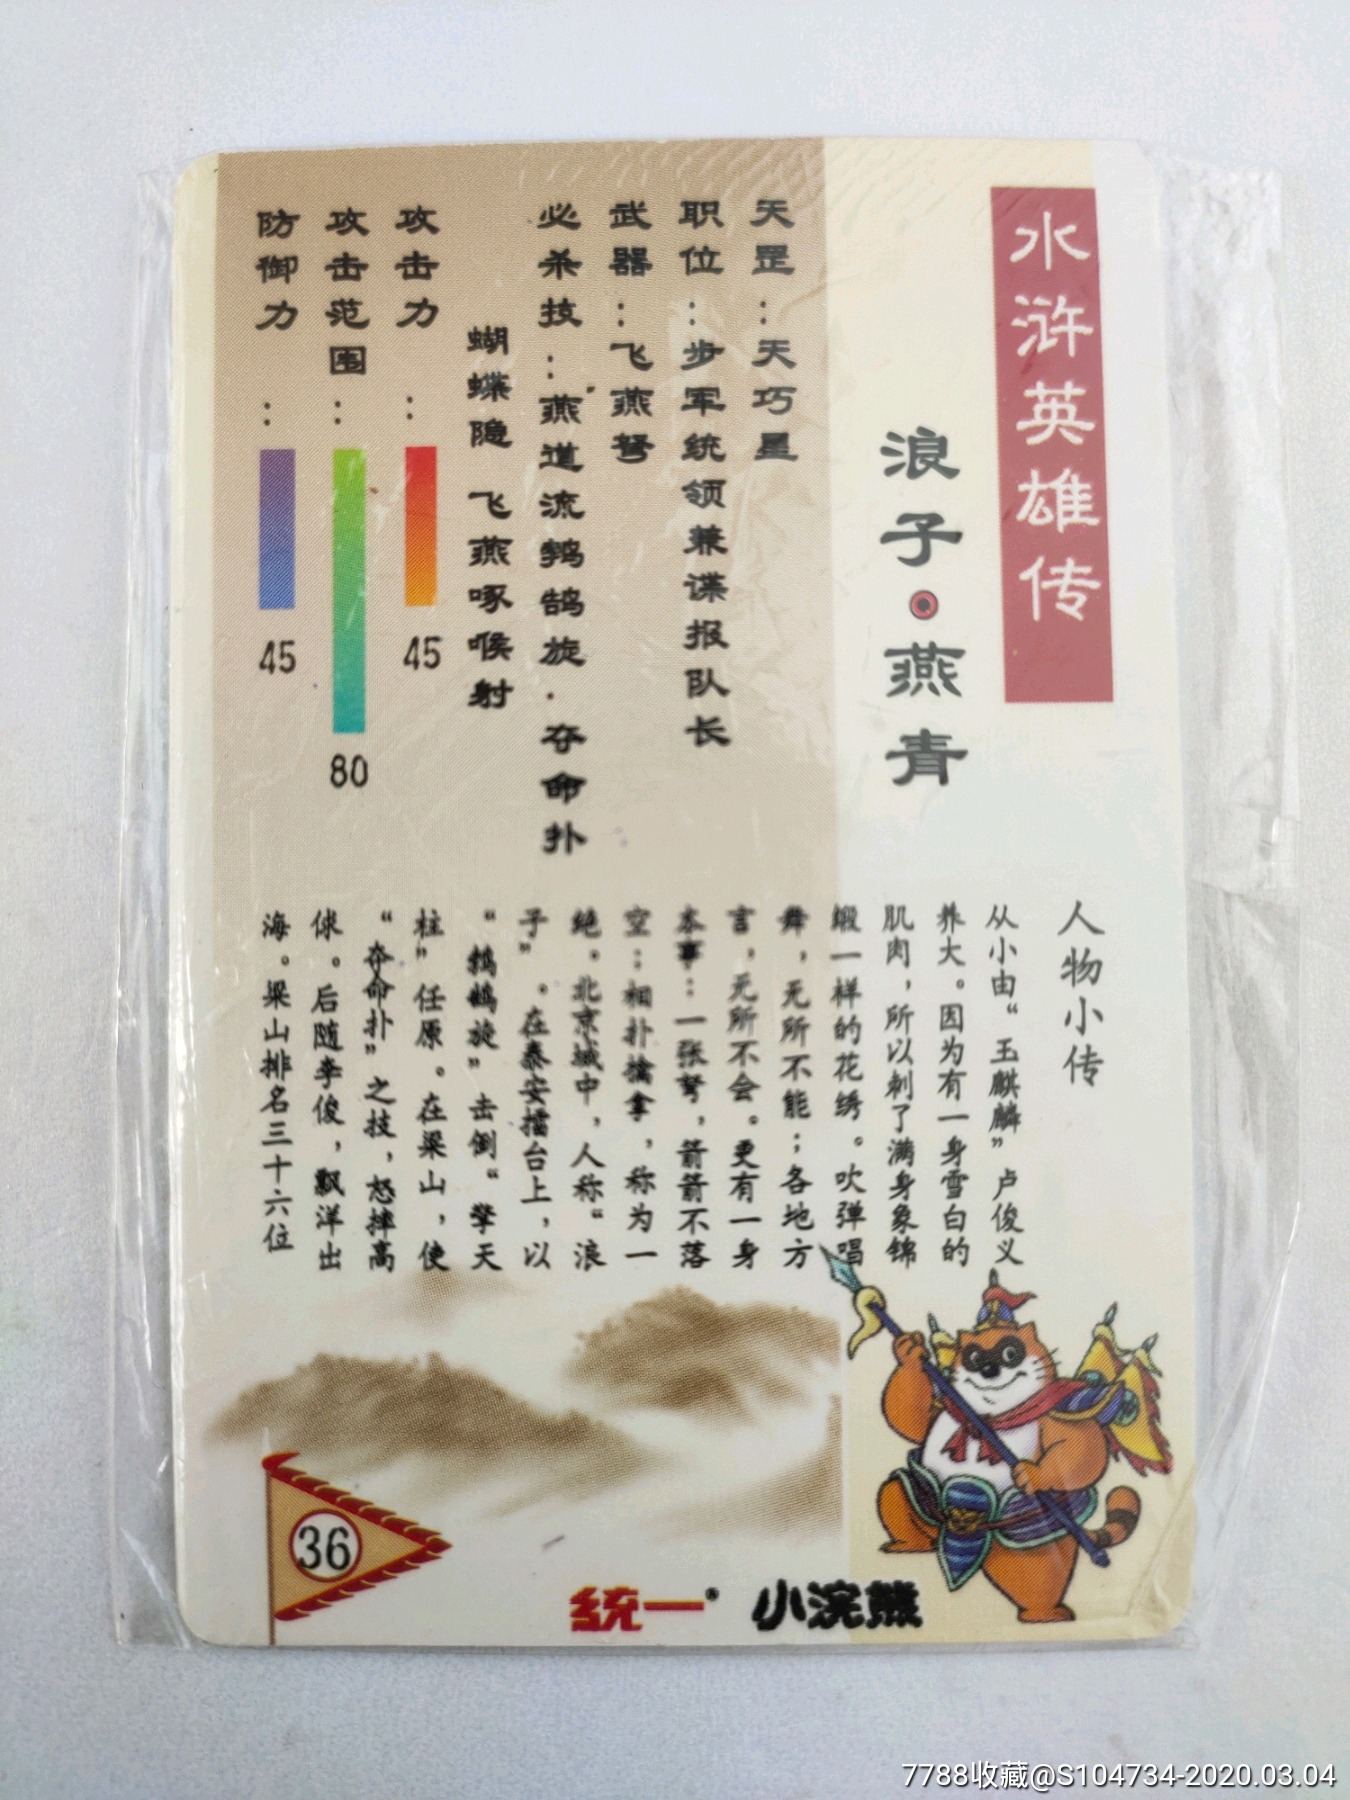 水浒英雄传
浪子·燕青
天罡：天巧星
职位：步军统领兼谍报队长
武器：飞燕弩
必杀技：燕道流鹁鸪旋·夺命扑
蝴蝶隐 飞燕啄喉射
攻击力：45
攻击范围：80
防御力：45
人物小传
从小由“玉麒麟”卢俊义
养大。因为有一身雪白的
肌肉，所以刺了满身象锦
缎一样的花绣。吹弹唱
舞，无所不能；各地方
言，无所不会。更有一身
本事：一张弩，箭箭不落
空；相扑擒拿，称为一
绝。北京城中，人称“浪
子”。在泰安擂台上，以
“鹁鸪旋”击倒“擎天
柱”任原。在梁山，使
“夺命扑”之技，怒摔高
俅。后随李俊，飘洋出
海。梁山排名三十六位
36
统一® 小浣熊
7788收藏@S104734-2020.03.04